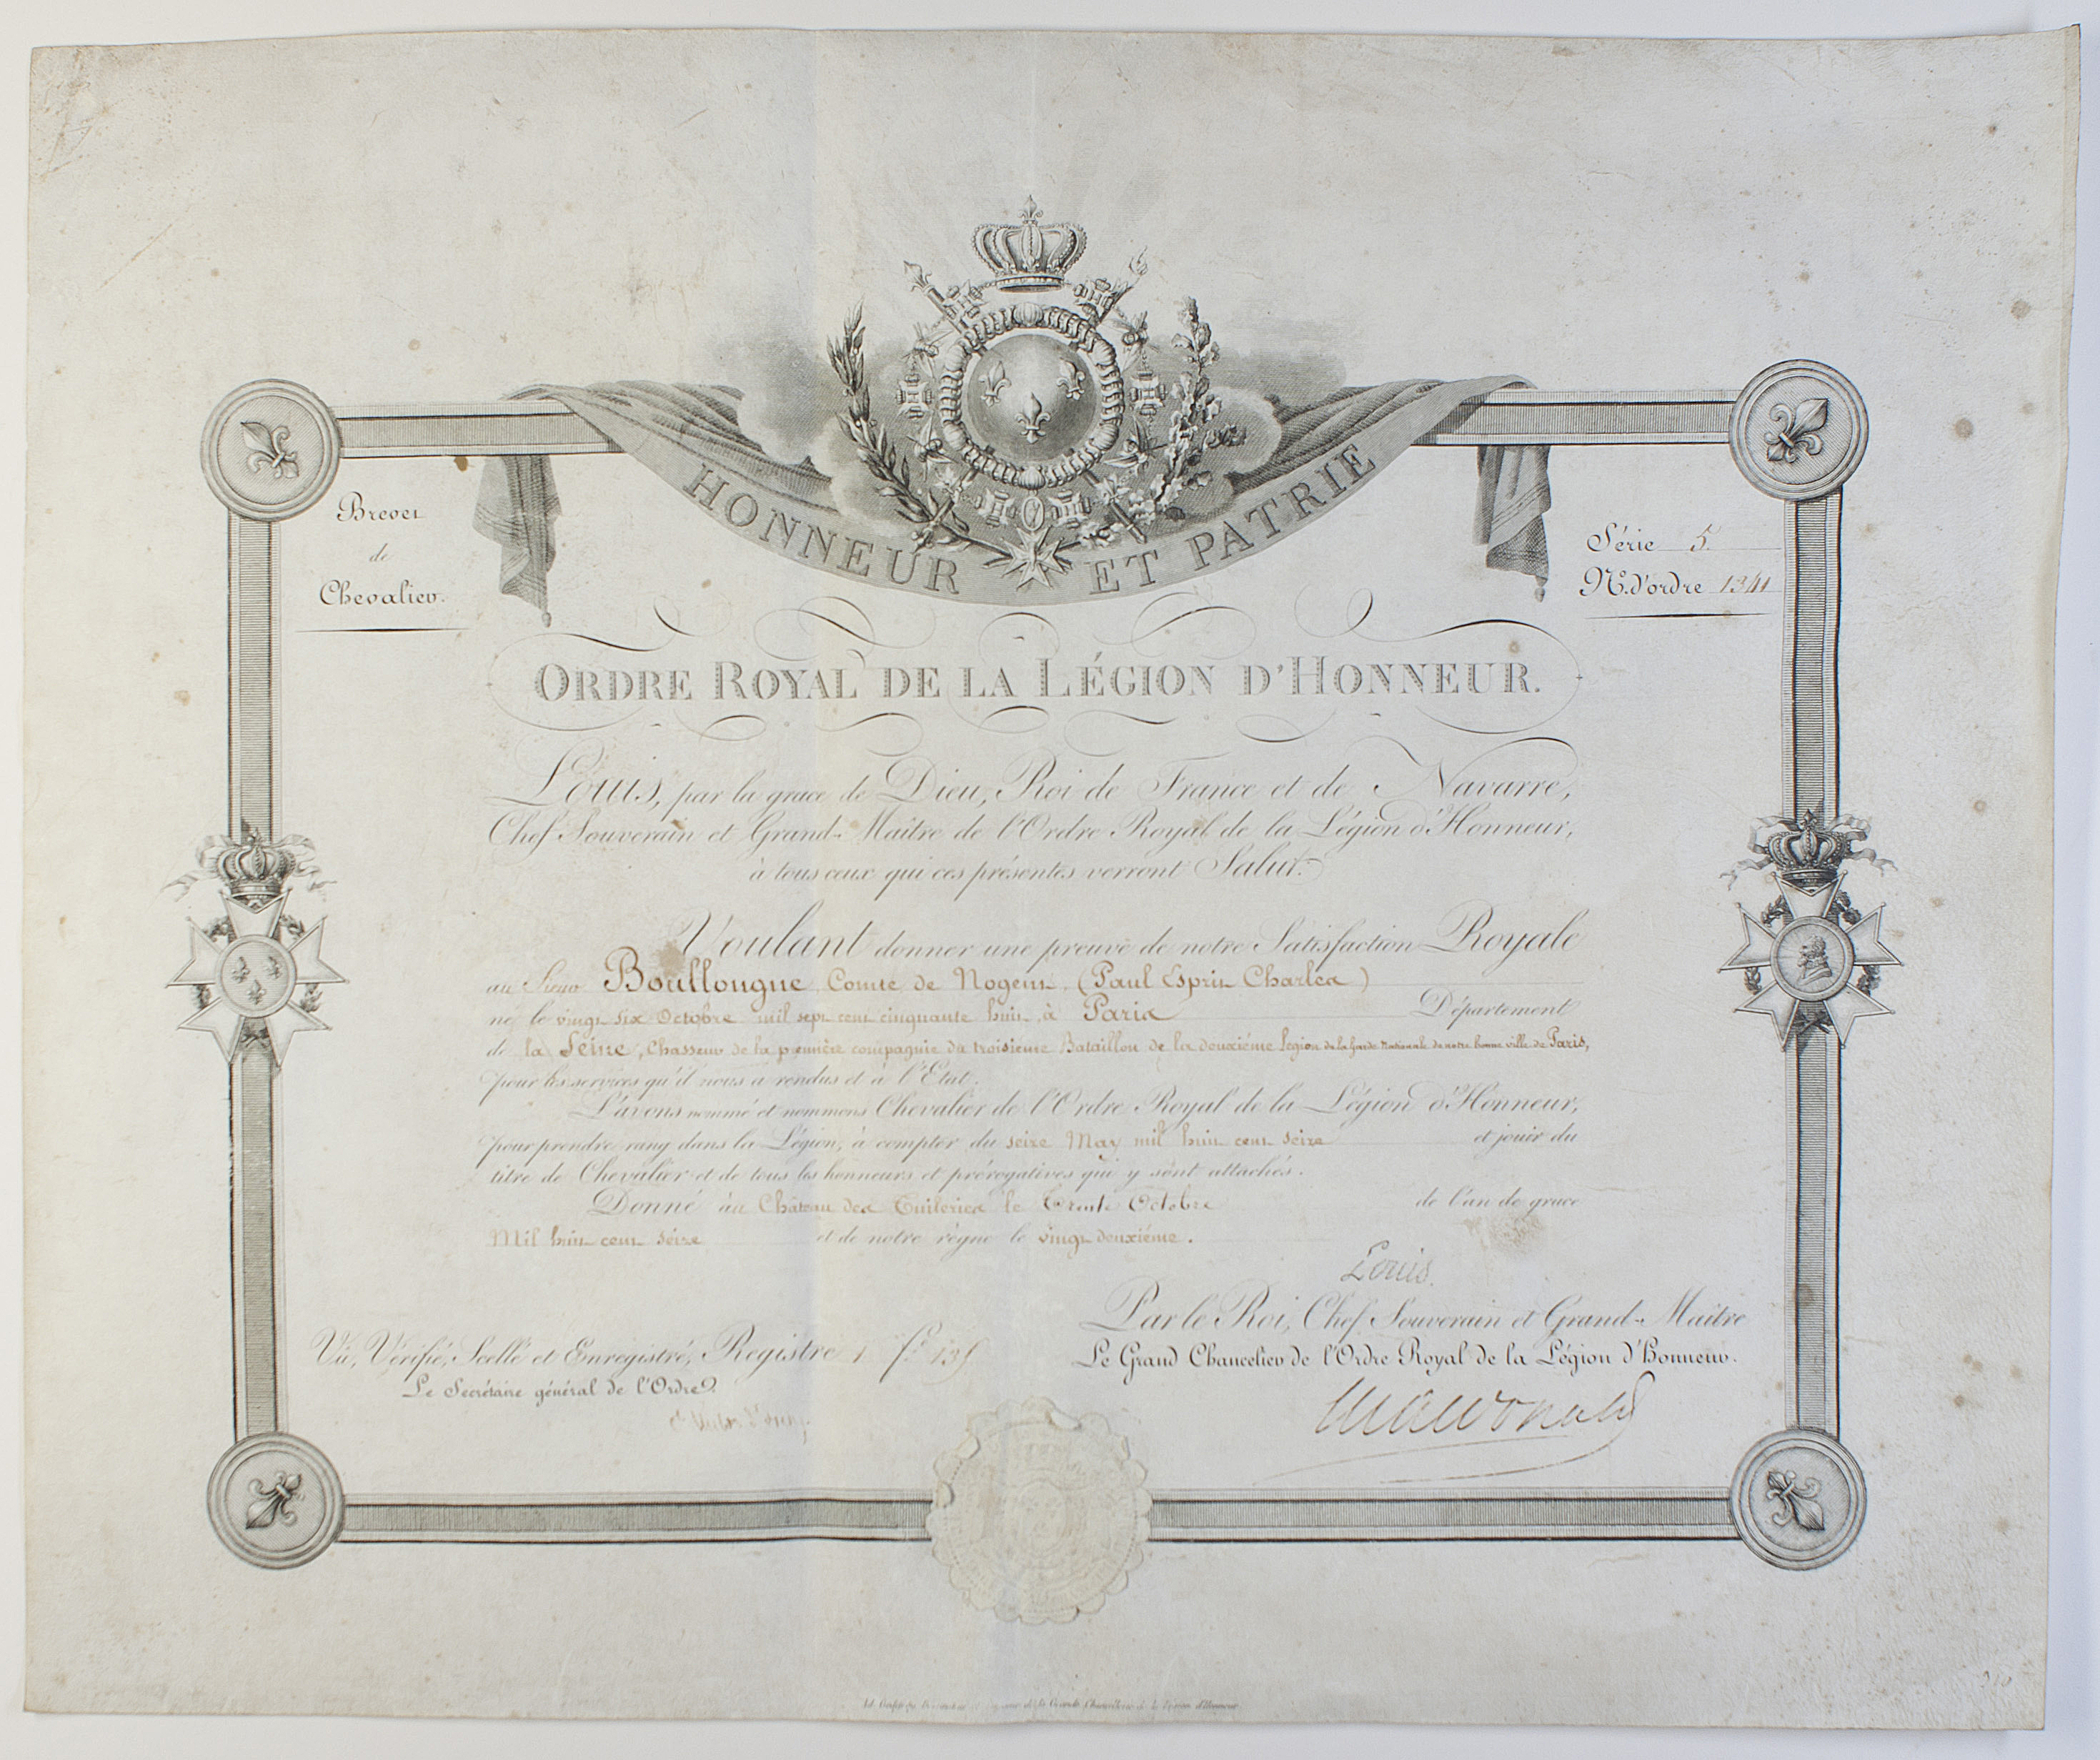 HONNEUR ET PATRIE
Brevet
de
Chevalier.
Série 5.
N.º d'ordre 1341
ORDRE ROYAL DE LA LÉGION D'HONNEUR.
Louis, par la grace de Dieu, Roi de France et de Navarre,
Chef Souverain et Grand-Maître de l'Ordre Royal de la Légion d'Honneur,
à tous ceux qui ces présentes verront Salut.
Voulant donner une preuve de notre Satisfaction Royale
au Sieur Boullongne Comte de Nogent (Paul Esprit Charles)
né le vingt six Octobre mil sept cent cinquante huit, à Paris Département
de la Seine, Chasseur de la première compagnie du troisième Bataillon de la douzième légion de la Garde Nationale de notre bonne ville de Paris,
pour les services qu'il nous a rendus et à l'Etat.
L'avons nommé et nommons Chevalier de l'Ordre Royal de la Légion d'Honneur,
pour prendre rang dans la Légion, à compter du seize May mil huit cent seize et jouir du
titre de Chevalier et de tous les honneurs et prérogatives qui y sont attachés.
Donné au Château des Tuileries le Trente Octobre de l'an de grace
Mil huit cent seize et de notre règne le vingt deuxième.
Louis.
Par le Roi, Chef Souverain et Grand-Maître
Le Grand Chancelier de l'Ordre Royal de la Légion d'Honneur.
Macdonald
Vu, Vérifié, Scellé et Enregistré, Registre 1 f.º
Le Secrétaire général de l'Ordre